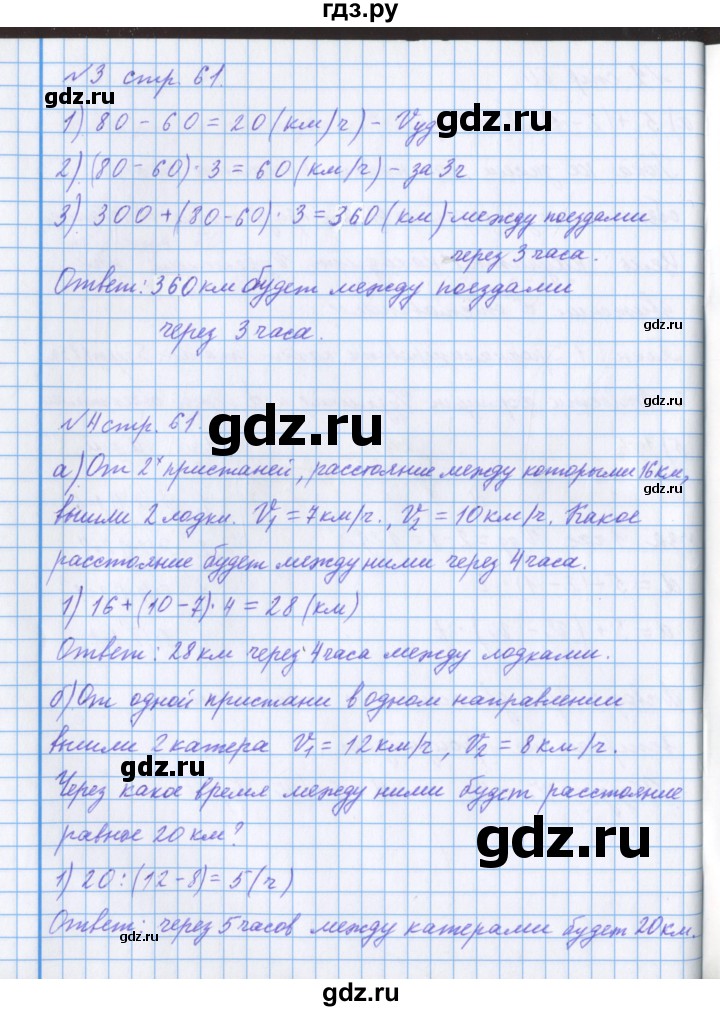 гдз.ру
№3 стр. 61.
gdz.ru
1) 80 - 60 = 20 (км/ч) - Vуд
gdz.ru
2) (80 - 60) · 3 = 60 (км/ч) - за 3ч
3) 300 + (80-60) · 3 = 360 (км) - между поездами
через 3 часа.
Ответ: 360 км будет между поездами
через 3 часа.
gdz.ru
№4 стр. 61.
gdz.ru
а) От 2х пристаней, расстояние между которыми 16 км,
gdz.ru
вышли 2 лодки. V₁ = 7 км/ч., V₂ = 10 км/ч. Какое
расстояние будет между ними через 4 часа.
1) 16 + (10 - 7) · 4 = 28 (км)
Ответ: 28 км через 4 часа между лодками.
gdz.ru
б) От одной пристани в одном направлении
вышли 2 катера V₁ = 12 км/ч, V₂ = 8 км/ч.
gdz.ru
Через какое время между ними будет расстояние
равное 20 км?
gdz.ru
1) 20 : (12 - 8) = 5 (ч)
Ответ: через 5 часов между катерами будет 20 км.
gdz.ru
gdz.ru